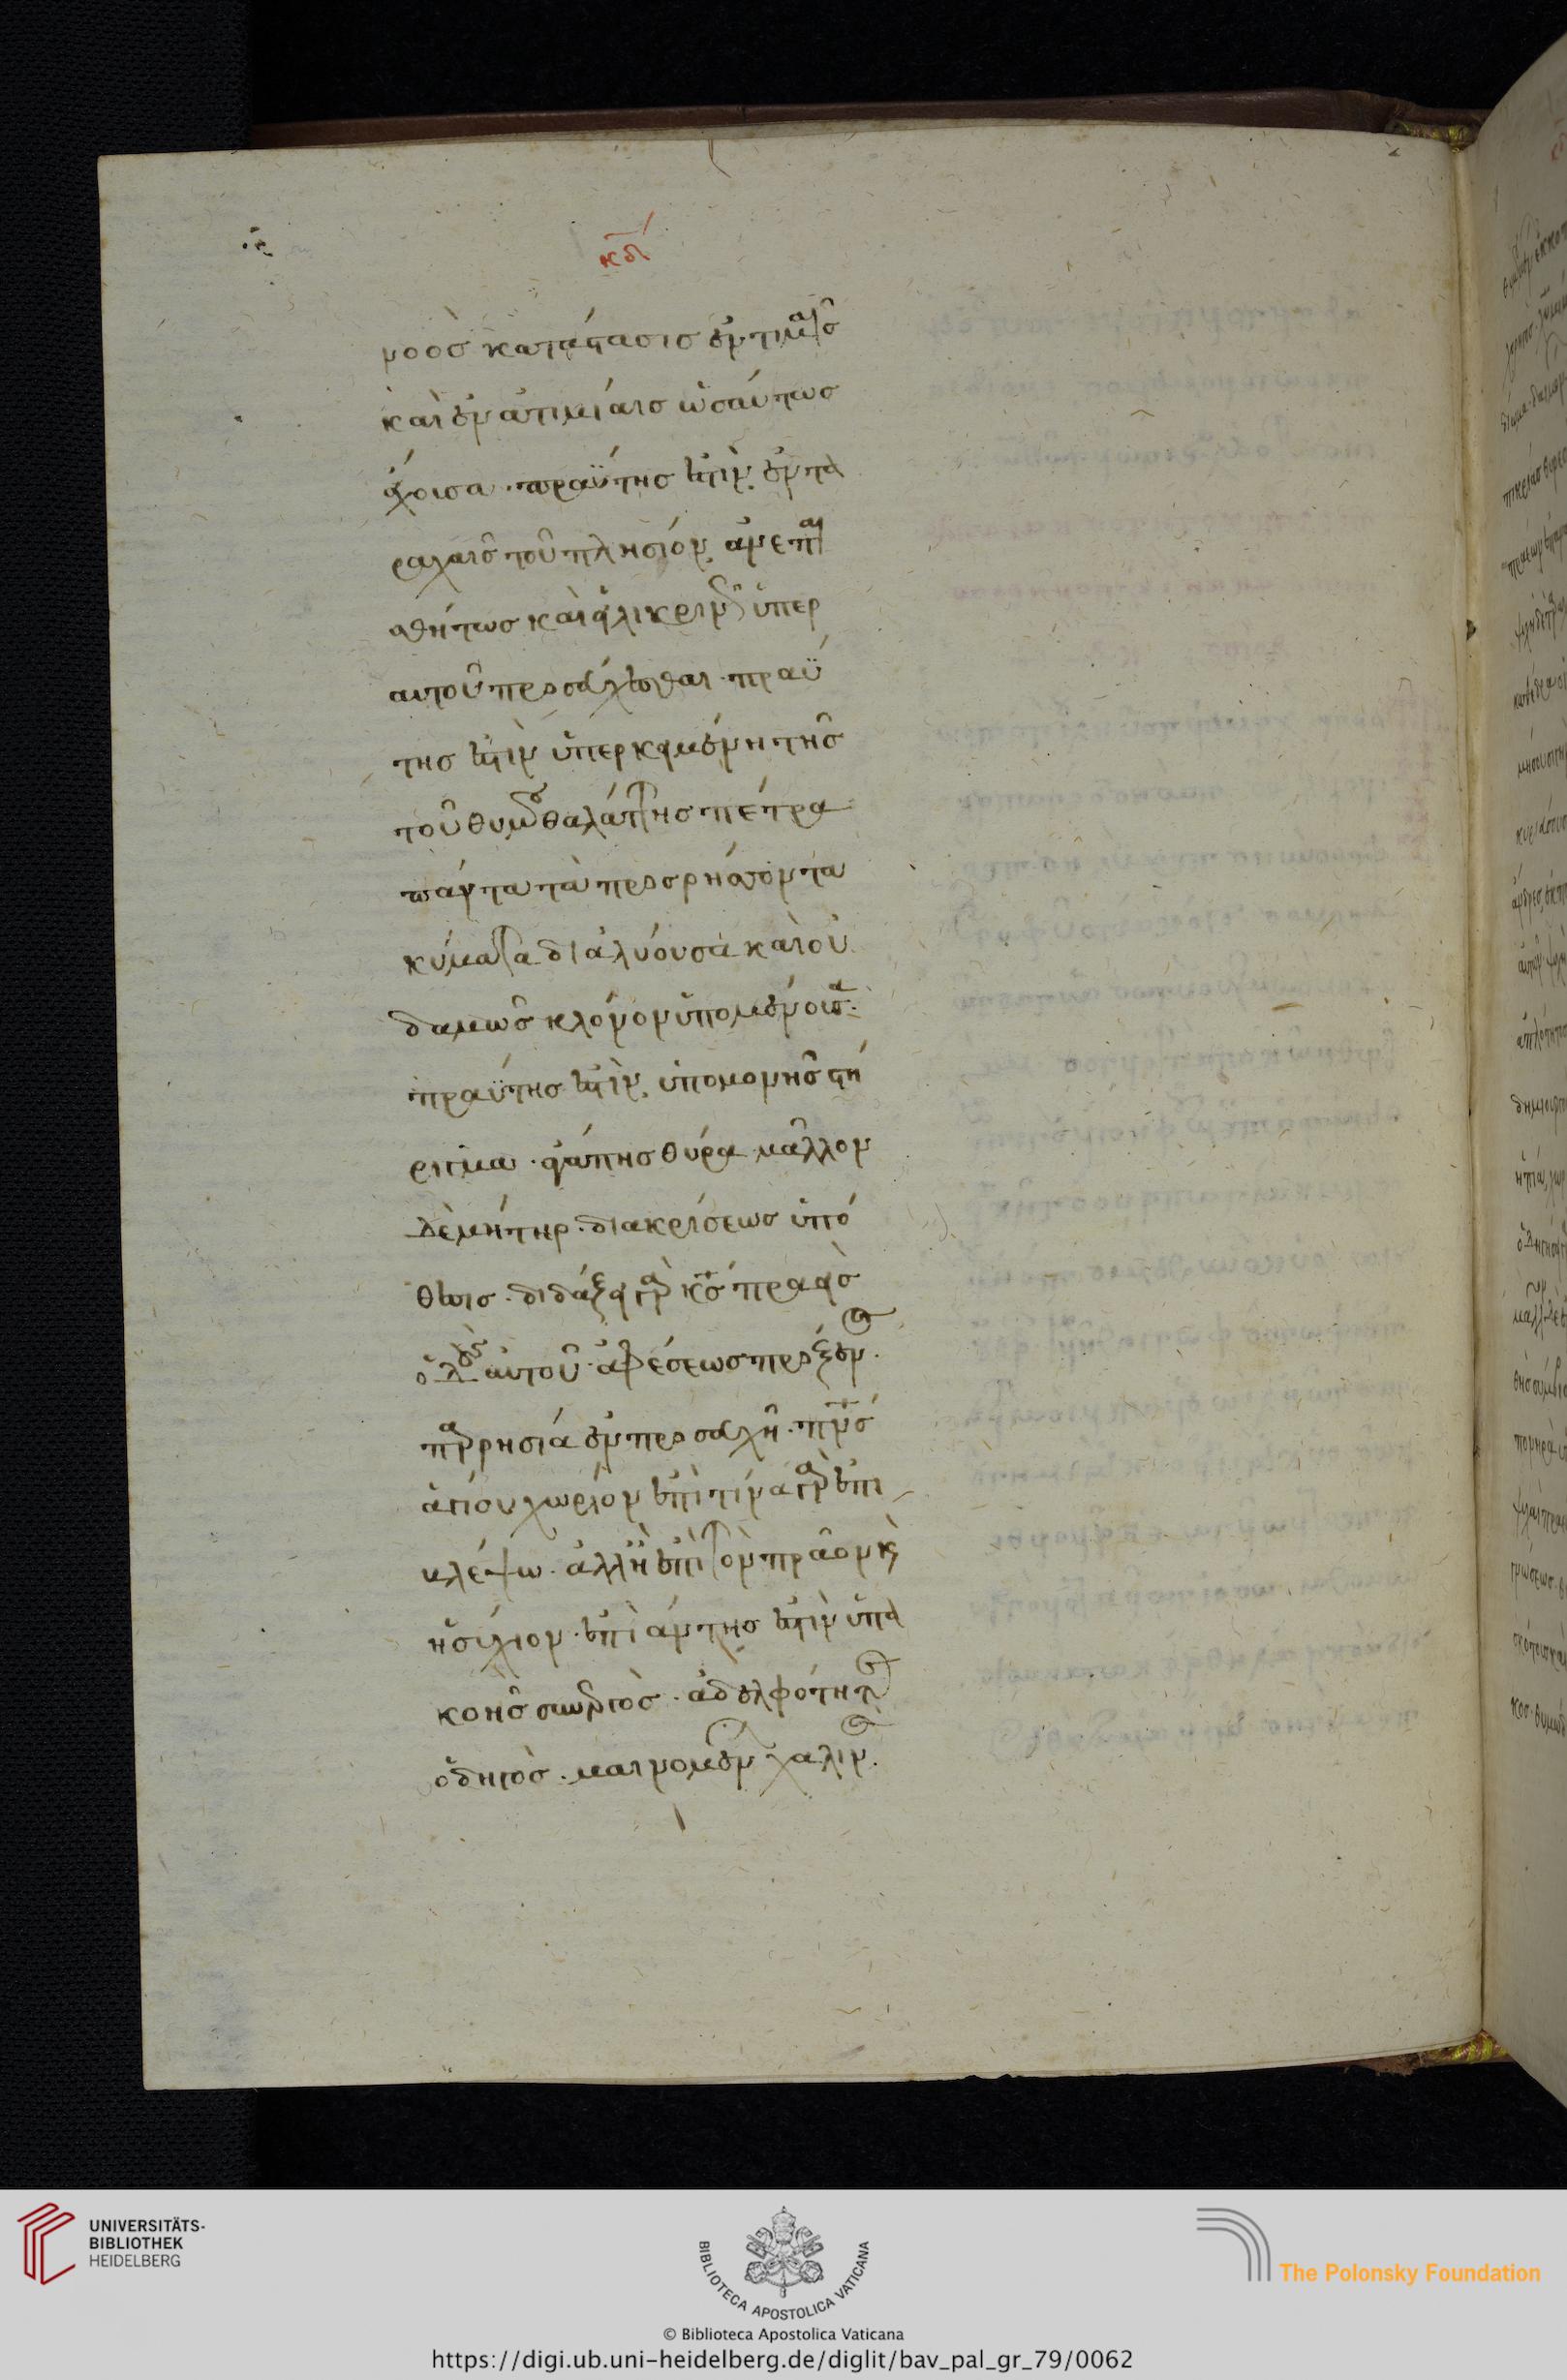 κδ
νοὸσ κατάστασισ ἐν τιμαῖσ
καὶ ἐν ἀτιμίαισ ὡσαύτωσ
ἔχουσα· πραΰτησ ἐστὶν ἐν τα
ραχαῖσ τοῦ πλησίον ἀνεπαισ
θήτωσ καὶ εἰλικρινῶσ ὑπερ
αυτοῦ προσεύχεσθαι· πραΰ
τησ ἐστὶν ὑπερκειμένη τῆσ
τοῦ θυμοῦ θαλάττησ πέτρα
πάντα τὰ προσρησσόντα
κύματα διαλύουσα καὶ οὐ
δαμῶσ κλόνον ὑπομένουσα·
πραΰτησ ἐστὶν ὑπομονῆσ στή
ριγμα· ἀγάπησ θύρα μᾶλλον
δὲ μήτηρ· διακρίσεωσ ὑπό
θεσισ· διδάξει γὰρ κσ πραεῖσ
ὁδοὺσ αὐτοῦ· ἀφέσεωσ πρόξενοσ·
παρρησία ἐν προσευχῆ· πνσ
ἁγίου χωρίον ἐπὶ τίνα γὰρ ἐπι
βλέψω· ἀλλ' ἢ ἐπὶ τὸν πρᾶον κὶ
ἡσύχιον· ἐπὶ ἐστὶν ὑπα
κοῆσ συνεργὸσ· ἀδελφότητοσ
ὁδηγὸσ· μαινομένων χαλινοσ·
UNIVERSITÄTS-
BIBLIOTHEK
HEIDELBERG
BIBLIOTECA APOSTOLICA VATICANA
The Polonsky Foundation
© Biblioteca Apostolica Vaticana
https://digi.ub.uni-heidelberg.de/diglit/bav_pal_gr_79/0062